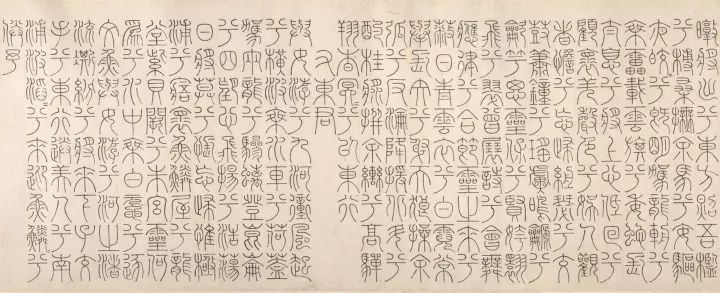 暾將出兮東方照吾檻
兮榑桑撫余馬兮安驅
夜皎〻兮既明駕龍輈兮
乘雷載雲旗兮委蛇長
太息兮將上心低佪兮
顧懷羌聲色兮娛人觀
者憺兮忘歸緪瑟兮交
鼓簫鐘兮瑤簴鳴䶵兮
龡竽思靈保兮賢姱翾
飛兮翠曾展詩兮會舞
應律兮合節靈之來兮
蔽日青雲衣兮白霓裳
舉長矢兮射天狼操余
弧兮反淪降援北斗兮
酌桂漿撰余轡兮高駝
翔杳冥〻兮以東行
右東君
與女游兮九河衝風起
兮橫波乘水車兮荷蓋
駕兩龍兮驂螭登崑崙
兮四望心飛揚兮浩蕩
日將暮兮悵忘歸惟極
浦兮寤懷魚鱗屋兮龍
堂紫貝闕兮朱宮靈何
為兮水中乘白黿兮逐
文魚與女游兮河之渚
流澌紛兮將來下子交
手兮東行送美人兮南
浦波滔〻兮來迎魚鱗〻兮
媵予